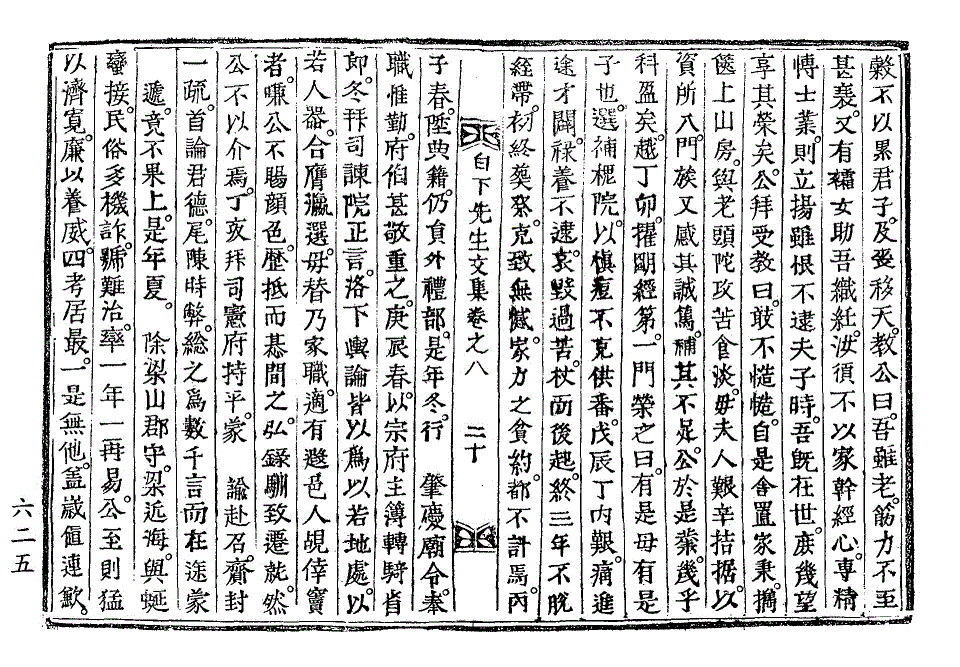 穀不以累君子及妥移天教公曰吾雖老筋力不至
甚衰又有孀女助吾織紝汝須不以家幹經心專精
博士業則立揚雖恨不逮夫子時吾旣在世庶幾望
享其榮矣公拜受教曰敢不慥慥自是舍置家累携
篋上山房與老頭陀攻苦食淡毋夫人艱辛拮据以
資所入門族又感其誠篤補其不足公於是業幾乎
科盈矣越丁卯擢明經第一門榮之曰有是毋有是
子也選補槐院以槙痘不克供番戊辰丁內艱痛進
途才闢祿養不逮哀毀過苦杖而後起終三年不脫
經帶初終葬祭克致無憾家力之貧約都不計焉丙
白下先生文集卷之八 二十
子春陞典籍仍貟外禮部是年冬行 肇慶廟令奉
職惟勤府伯甚敬重之庚辰春以宗府主簿轉騎省
郎冬拜司諫院正言洛下輿論皆以爲以若地處以
若人器合膺瀛選毋替乃家職適有邀邑人覘倖竇
者嗛公不賜顔色歷抵而惎間之弘錄駲致遷就然
公不以介焉丁亥拜司憲府持平蒙 諭赴召齎封
一疏首論君德尾陳時弊緫之爲數千言而在途蒙
遞竟不果上是年夏 除梁山郡守梁近海與蜒
蠻接民俗多機詐號難治率一年一再易公至則猛
以濟寬廉以養威四考居最一是無他盖歲値連歉
六二五